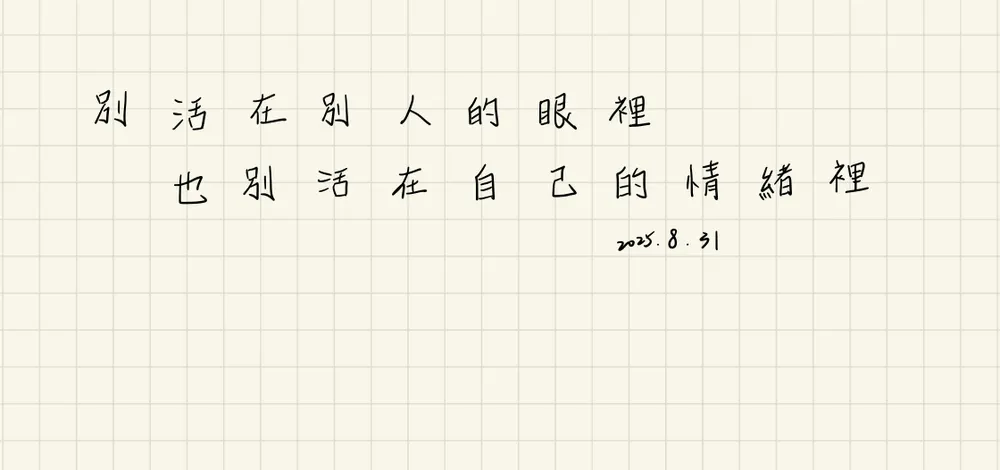 別活在別人的眼裡
也別活在自己的情緒裡
2025.8.31